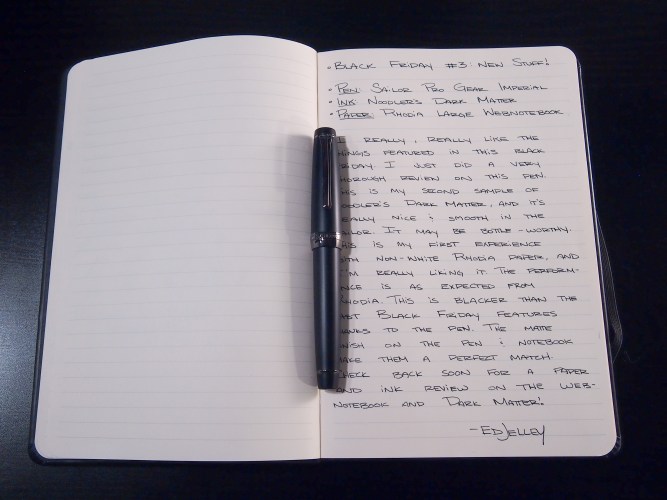 · Black Friday #3: New Stuff!
· Pen: Sailor Pro Gear Imperial
· Ink: Noodler's Dark Matter
· Paper: Rhodia Large Webnotebook
I really, really like the
hings featured in this Black
riday. I just did a very
horough review on this pen.
his is my second sample of
oodler's Dark Matter, and it's
eally nice & smooth in the
ailor. It may be bottle-worthy.
his is my first experience
ith non-white Rhodia paper, and
I'm really liking it. The perform-
nce is as expected from
hodia. This is blacker than the
ast Black Friday features
anks to the pen. The matte
nish on the pen & notebook
ake them a perfect match.
heck back soon for a paper
and ink review on the Web-
notebook and Dark Matter!
-Ed Jelley